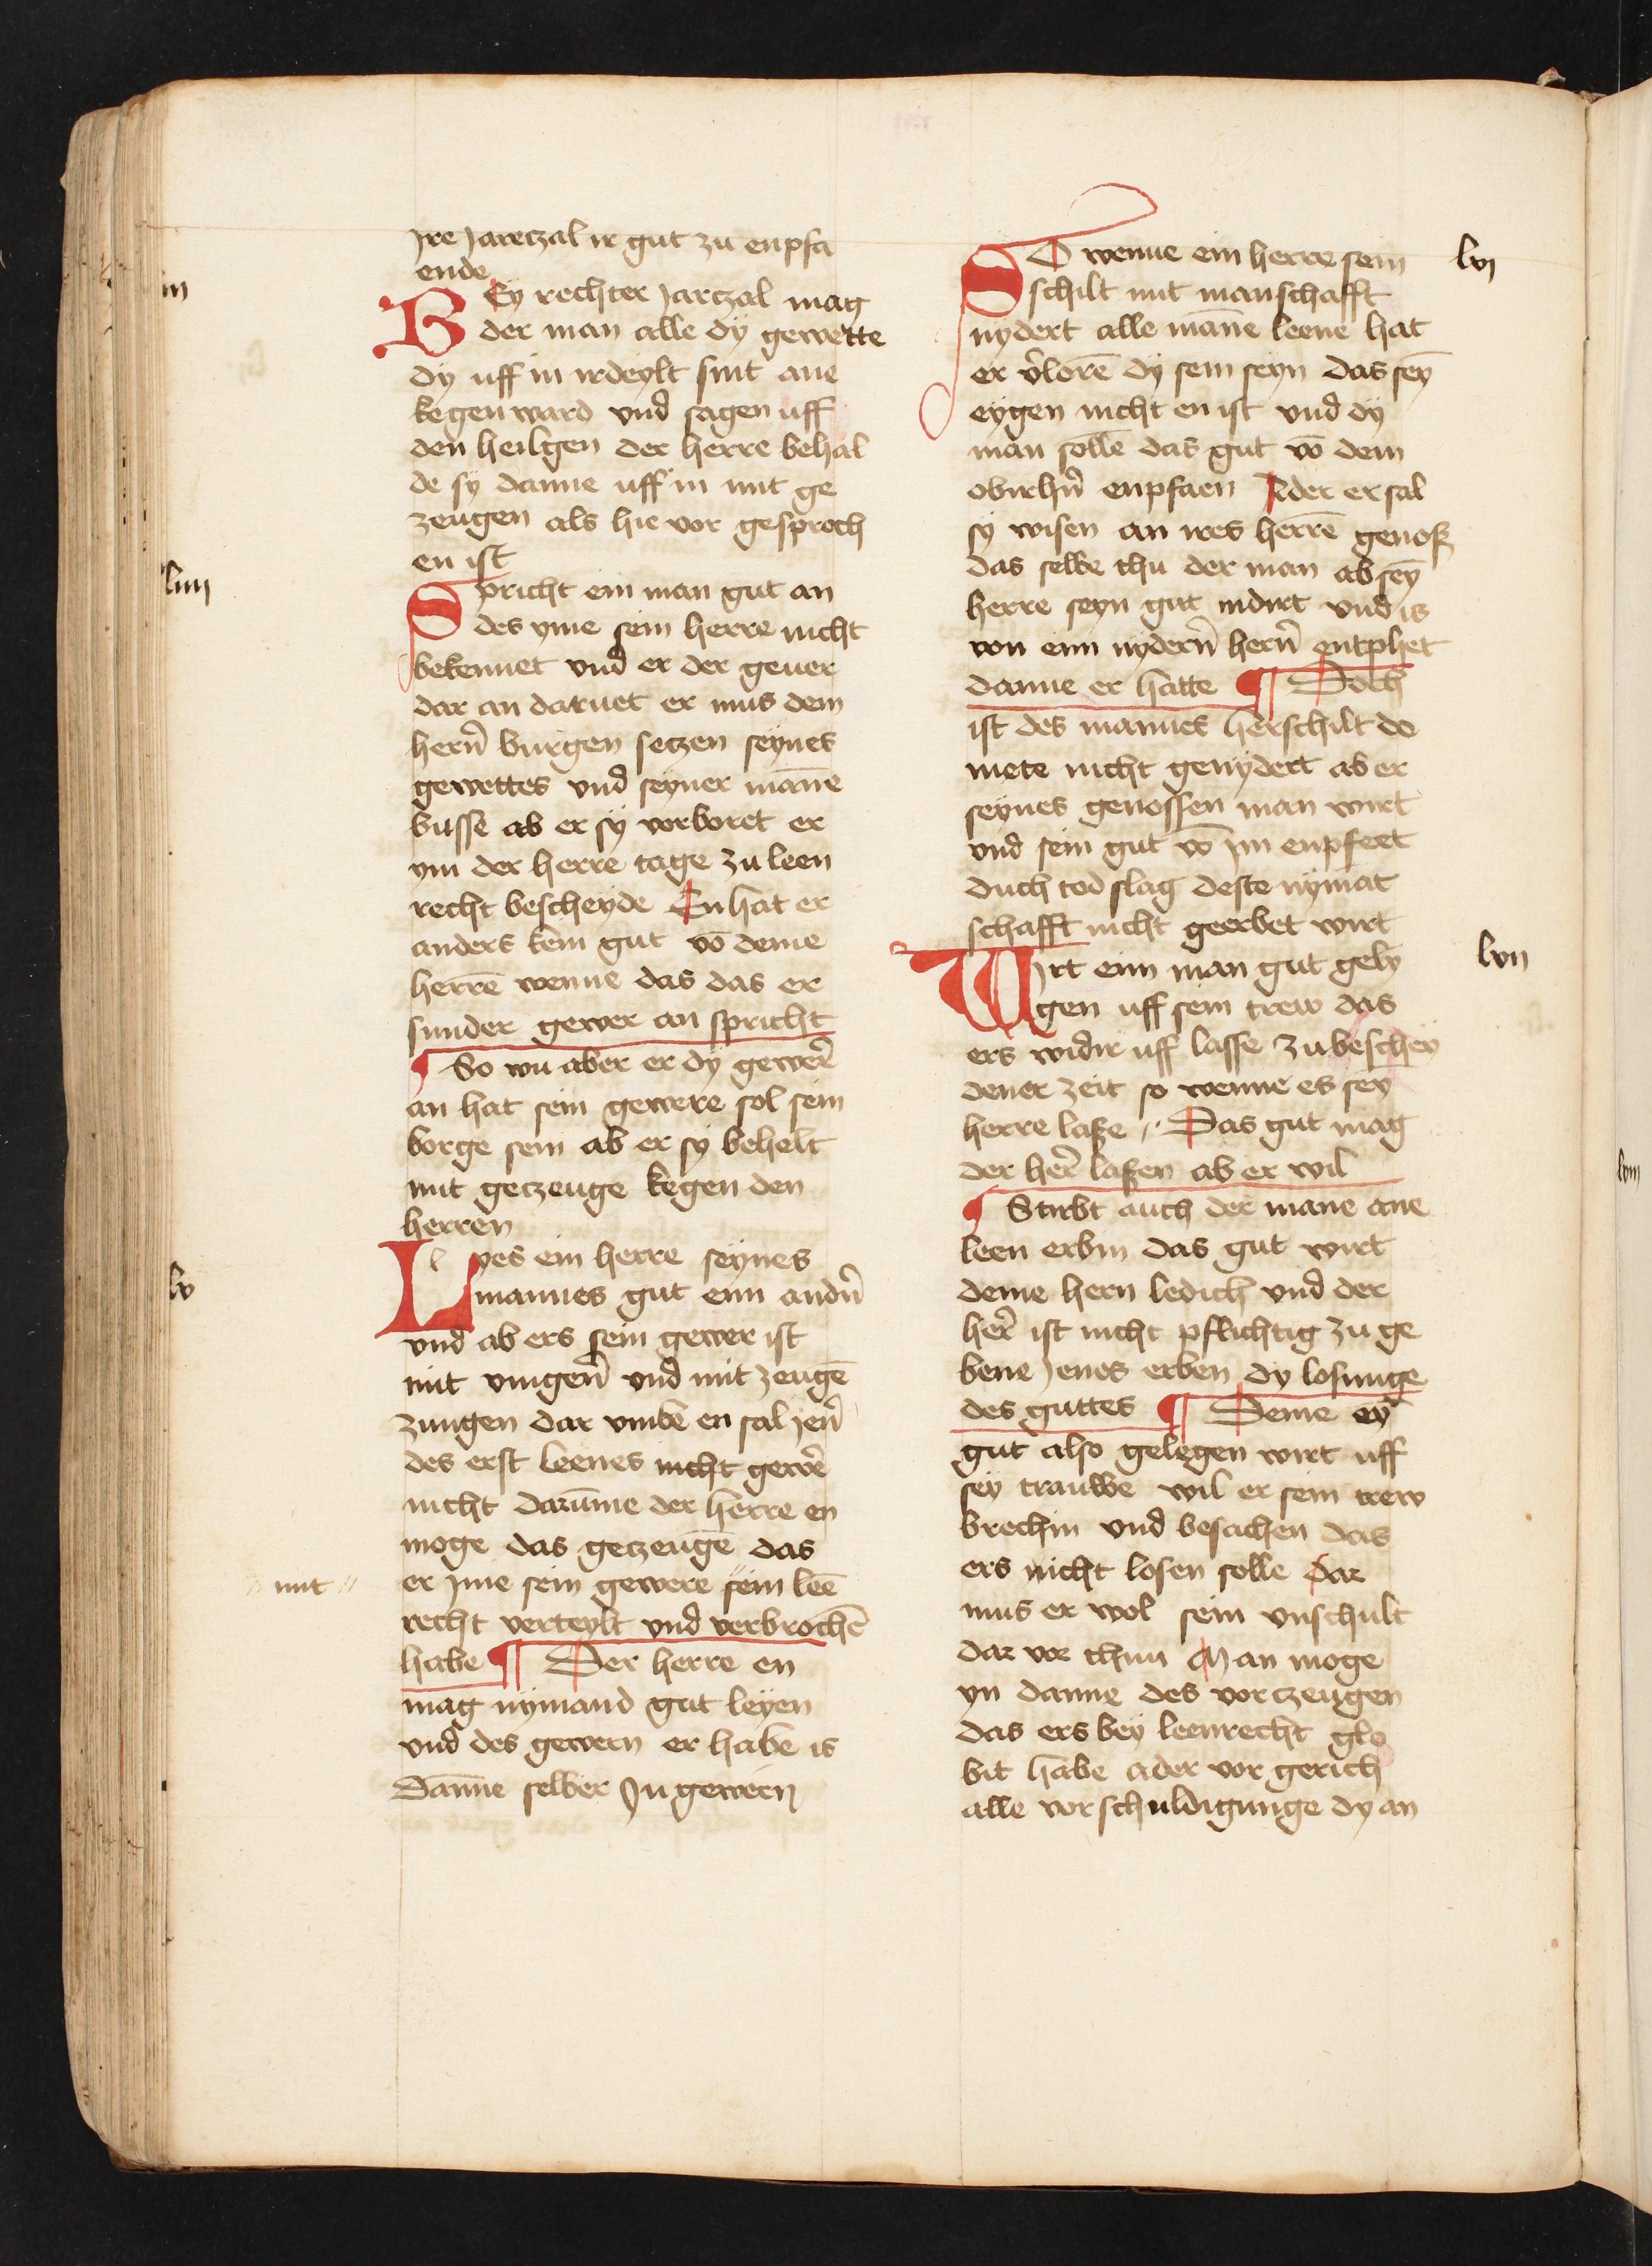 jre jarczal ir gut zu enpfa
ende
BEy rechter jarczal mag
der man alle dÿ gewette
dÿ uff in irdeylt sint ane
kegen ward vnd sagen uff
den heilgen der herre behal
de sÿ danne uff in mit ge
zeugen als hie vor gesproch
en ist
Spricht ein man gut an
des yme sein herre nicht
bekennet vnd er der gener
dar an daruet er mus dem
hern̄ burgen seczen seynes
gewettes vnd seyner mañe
busse ab er sÿ vorboret er
ym der herre tage zu leen
recht bescheyde En hat er
anders kein gut vō deme
herrē wenne das das er
sunder gewer an spricht
¶ So wu aber er dÿ gewer̄
an hat sein gewere sol sein
borge sein ab er sÿ behelt
mit geczeuge kegen den
herren
Lyes ein herre seynes
mannes gut eim andn̄
vnd ab ers sein gewer ist
mit vingern̄ vnd mit zeugē
zungen dar vmbe en sal jen̄
des erst leenes nicht gewer̄
nicht darūme der herre en
moge das geczeugē das
er jme sein gewere sein leē
recht verteylt vnd verbrochē
habe ¶ Der herre en
mag nÿmand gut leÿen
vnd des gewern er habe is
Dañne selber In gewern
liiii
lv
" mit "
SO wenne ein herre sein
schilt mit manschafft
nydert alle mañe leene hat
er v̄lorē dÿ sein seyn das sey̅
eygen nicht en ist vnd dÿ
man sollē das gut vō dem
obirhn̄ enpfaen Ader er sal
sÿ wisen an ires herrē genosz
das selbe thu der man ab sey̅
herre seyn gut nidirt vnd is
von eim nydern̄ hern̄ entphet
danne er hatte ¶ Doch
ist des mannes herschilt do
mete nicht genydert ab er
seynes genossen man wirt
vnd sein gut vō jm enpfeet
duch tod slag deste nymat
schafft nicht geerbet wirt
Wjrt eim man gut gely
gen uff sein trew das
ers widir uff lasse zu beschey
dener zeit so wenne es sey
herre lasze ,· Das gut mag
der her̄ laszen ab er wil
¶ Stirbt auch der mane ane
leen erbin das gut wirt
deme hern ledich vnd der
her̄ ist nicht pflichtig zu ge
bene jenes erben dy losunge
des guttes ¶ Deme ey̅
gut also gelegen wirt uff
sey trauwe wil er sein trew
brechin vnd besachen das
ers nicht losen solle dar
mus er wol sein vnschult
dar vor thun Man moge
yn danne des vorczeugen
das ers bey leenrecht glo
bit habe ader vor gerich
alle vorschuldigunge dy an
lvi
lvii
lviii